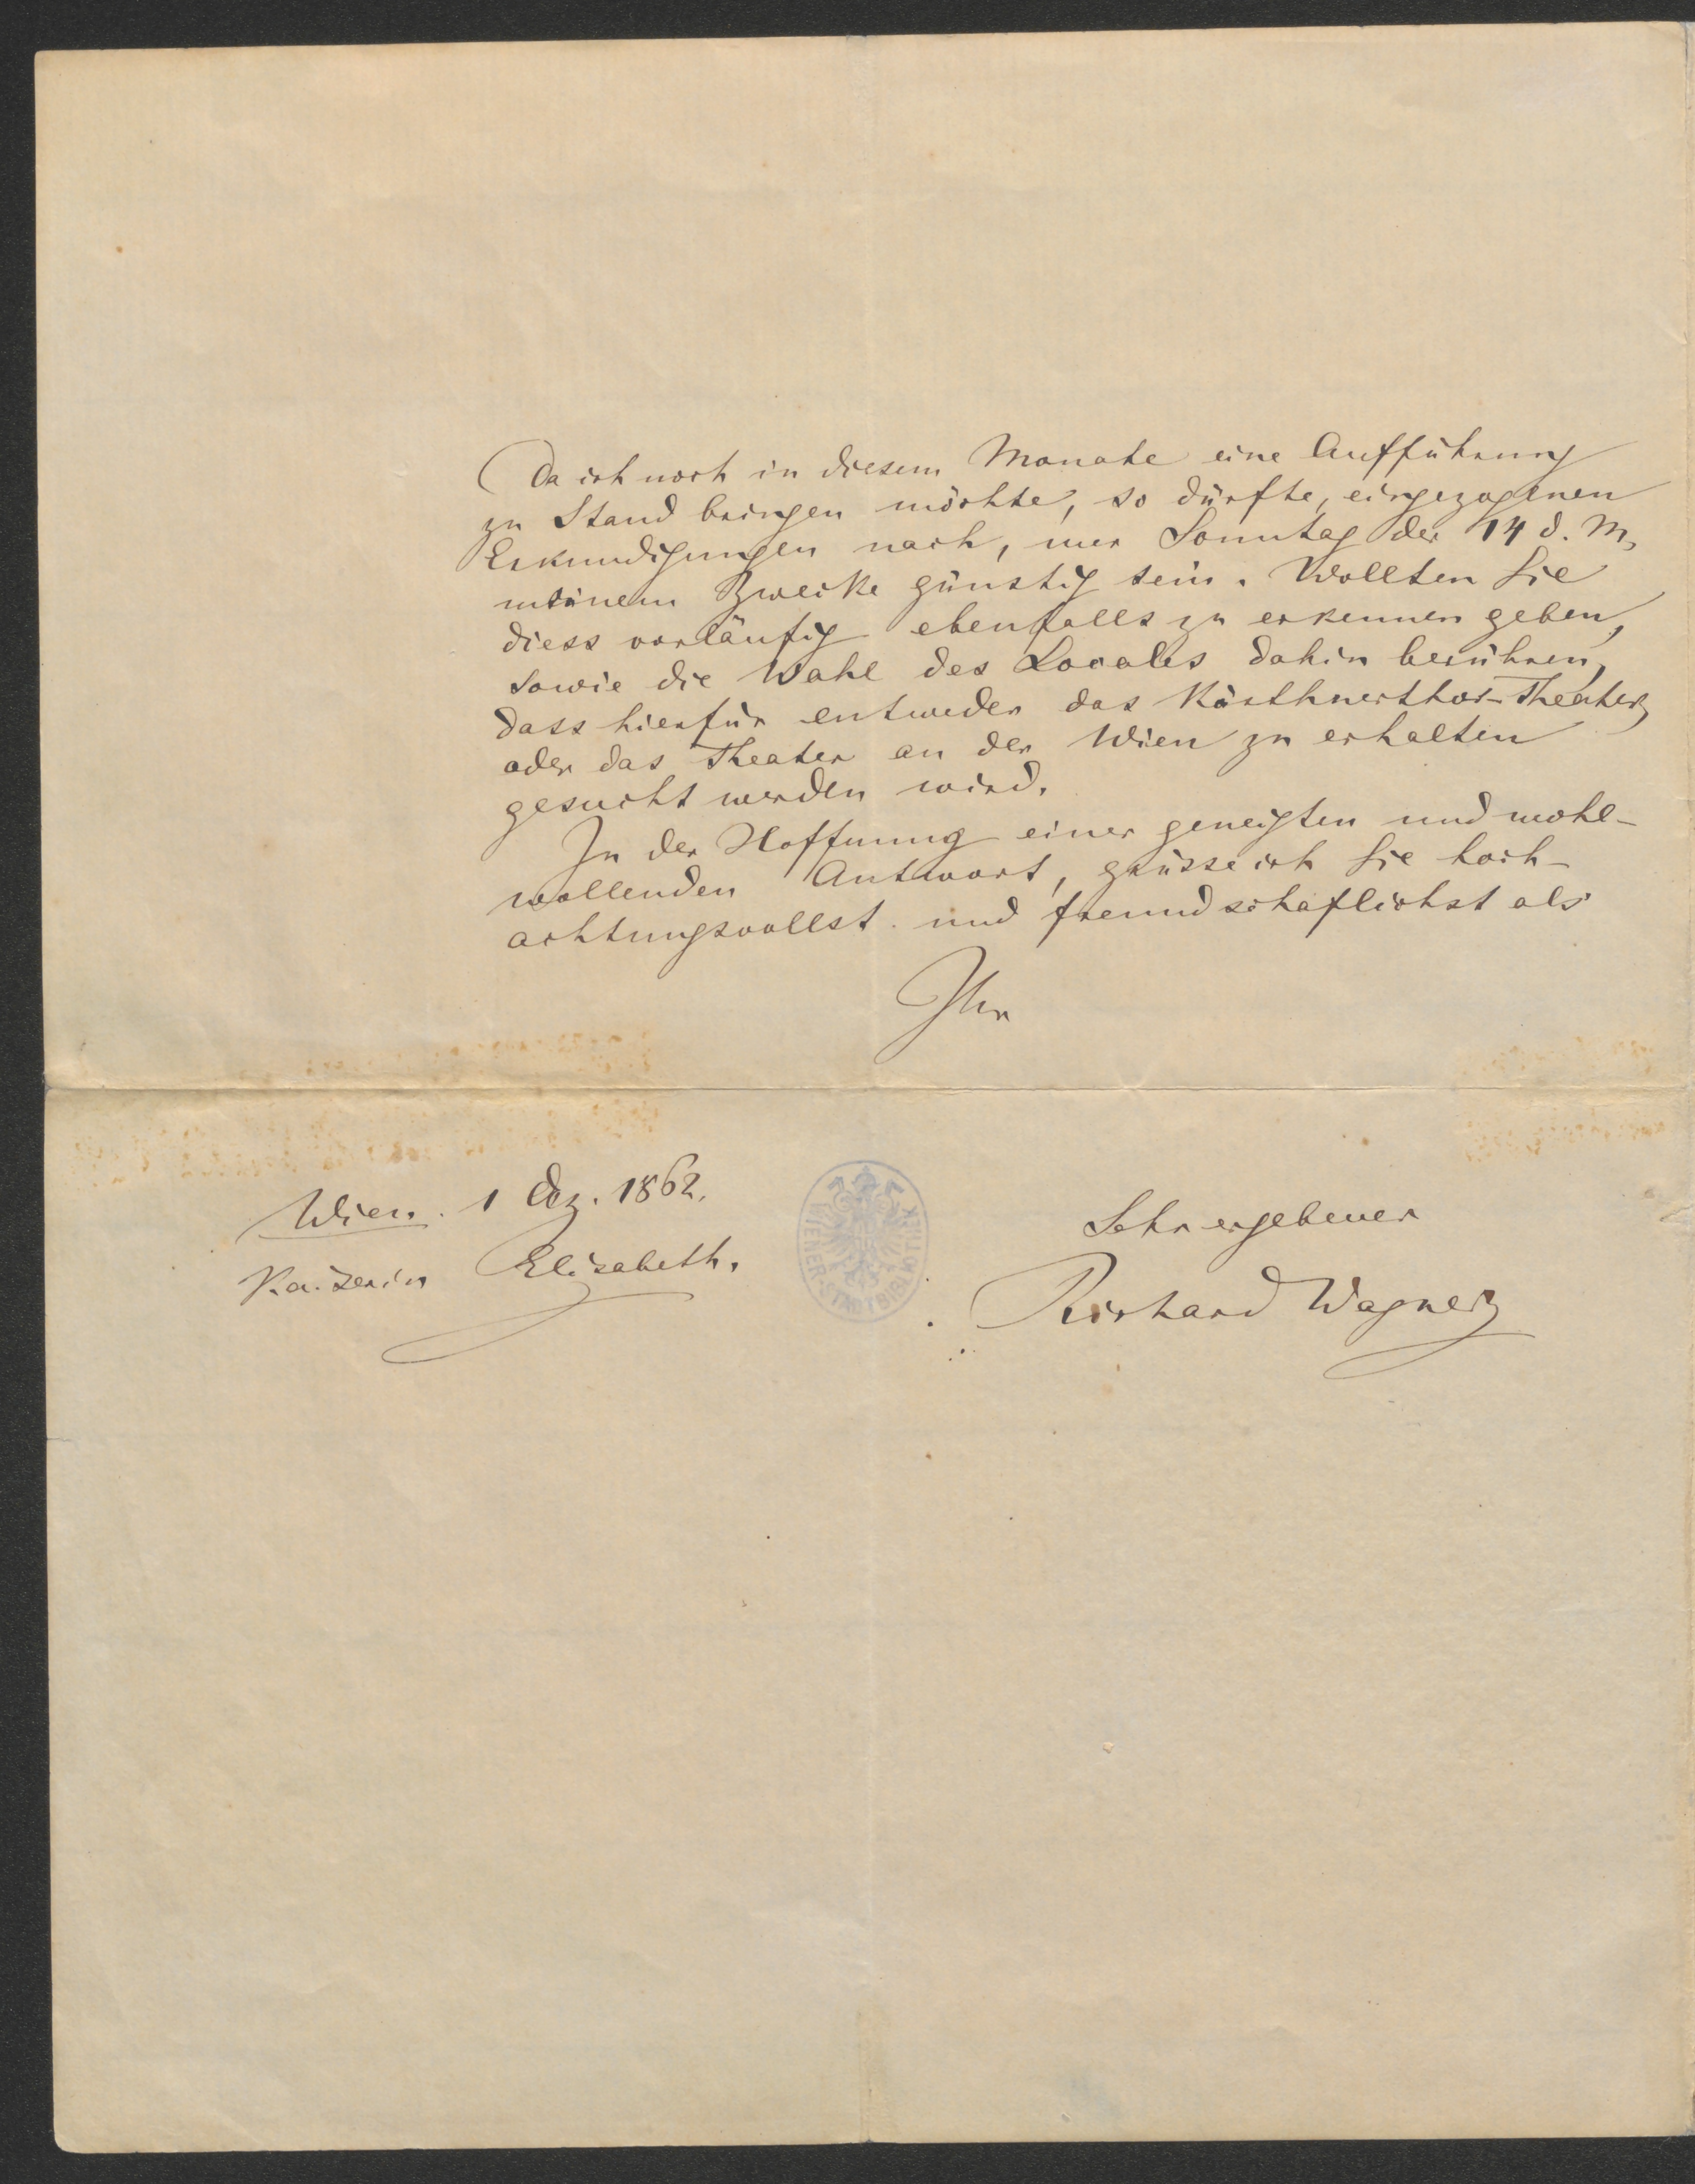 Da ich noch in diesem Monate eine Aufführung
zu Stand bringen möchte, so dürfte, eingezogenen
Erkundigungen nach, nur Sonntag der 14 d. M,
meinem Zwecke günstig sein. Wollten Sie
diess vorläufig ebenfalls zu erkennen geben,
sowie die Wahl des Locales dahin berühren,
dass hierfür entweder das Kärthnerthor-Theater,
oder das Theater an der Wien zu erhalten
gesucht werden wird.
In der Hoffnung einer geneigten und wohl-
wollenden Antwort, grüsse ich Sie hoch-
achtungsvollst und freundschaflichst als
Ihr
Wien. 1 Dez. 1862.
Sehr ergebener
Kaiserin Elisabeth.
Richard Wagner
WIENER-STADTBIBLIOTHEK